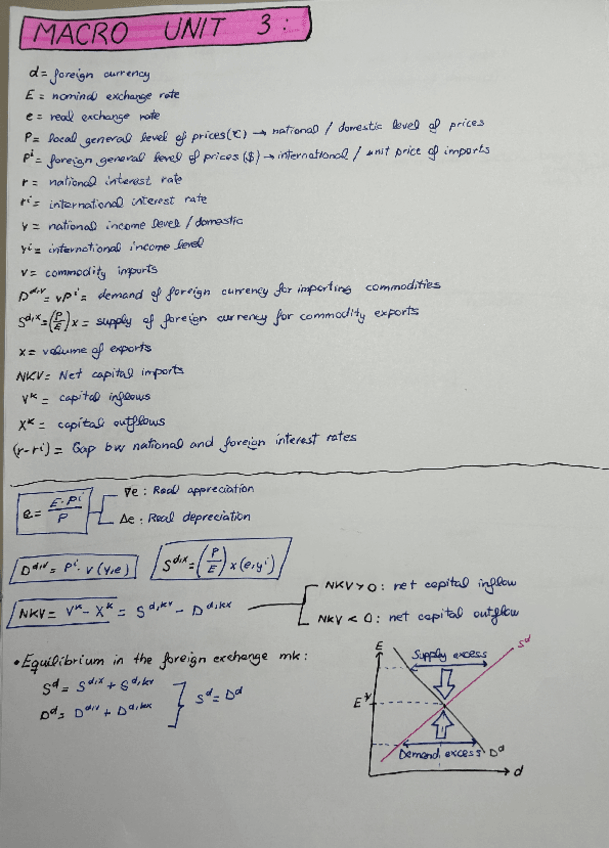 MACRO UNIT 3:
d = foreign currency
E = nominal exchange rate
e = real exchange rate
P = local general level of prices (€) → national / domestic level of prices
Pⁱ = foreign general level of prices ($) → international / unit price of imports
r = national interest rate
rⁱ = international interest rate
y = national income level / domestic
yⁱ = international income level
v = commodity imports
Dᵈ'ᵛ = vPⁱ = demand of foreign currency for importing commodities
Sᵈ'ˣ = (P/E) x = supply of foreign currency for commodity exports
x = volume of exports
NKV = Net capital imports
Vᴷ = capital inflows
Xᴷ = capital outflows
(r-rⁱ) = Gap bw national and foreign interest rates
e = E·Pⁱ/P
∇e : Real appreciation
Δe : Real depreciation
Dᵈ'ᵛ = Pⁱ · v (y,e)
Sᵈ'ˣ = (P/E) x (e,yⁱ)
NKV = Vᴷ - Xᴷ = Sᵈ'ᵏᵛ - Dᵈ'ᵏˣ
NKV > 0 : net capital inflow
NKV < 0 : net capital outflow
• Equilibrium in the foreign exchange mk :
Sᵈ = Sᵈ'ˣ + Sᵈ'ᵏᵛ
Dᵈ = Dᵈ'ᵛ + Dᵈ'ᵏˣ
Sᵈ = Dᵈ
E
Supply excess
Sᵈ
E*
Demand excess
Dᵈ
d